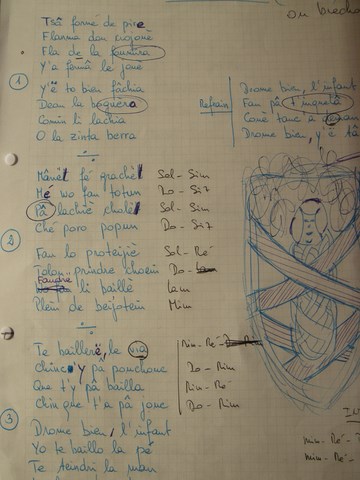 ou brecha
Tsâ formé de pire
Flamma don crojouè
Fla de la fournira
Y'a fermâ le joué
1
Y'ë to bien fâchia
Dean la boquëra
Comin li lachia
O la zinta berra
Refrain
Drome bien, l'infant
Fan pâ l'ingrată
Couè tanc à
Drome bien, y'ë tâ
÷
Mânë fé grachë Sol - Sim
Më wo fan totun Do - Si7
Pâ lachiè chalë Sol - Sim
Ché poro popun Do - Si7
2
Fan lo proteijiè Sol - Ré
prindre choein Do -
Faudre li baillè Lam
Plein de beijotein Mim
÷
Te baillerë, le via Mim - Ré -
Chinc y' pâ ponchouc Do - Rim
Que t'y pâ bailla Mim - Ré
Chin que t'a pâ jouc Do - Rim
3
Drome bien, l'infant
Yo te baillo la pé
Te teindri la man
Mim - Ré -
Mim - Ré -